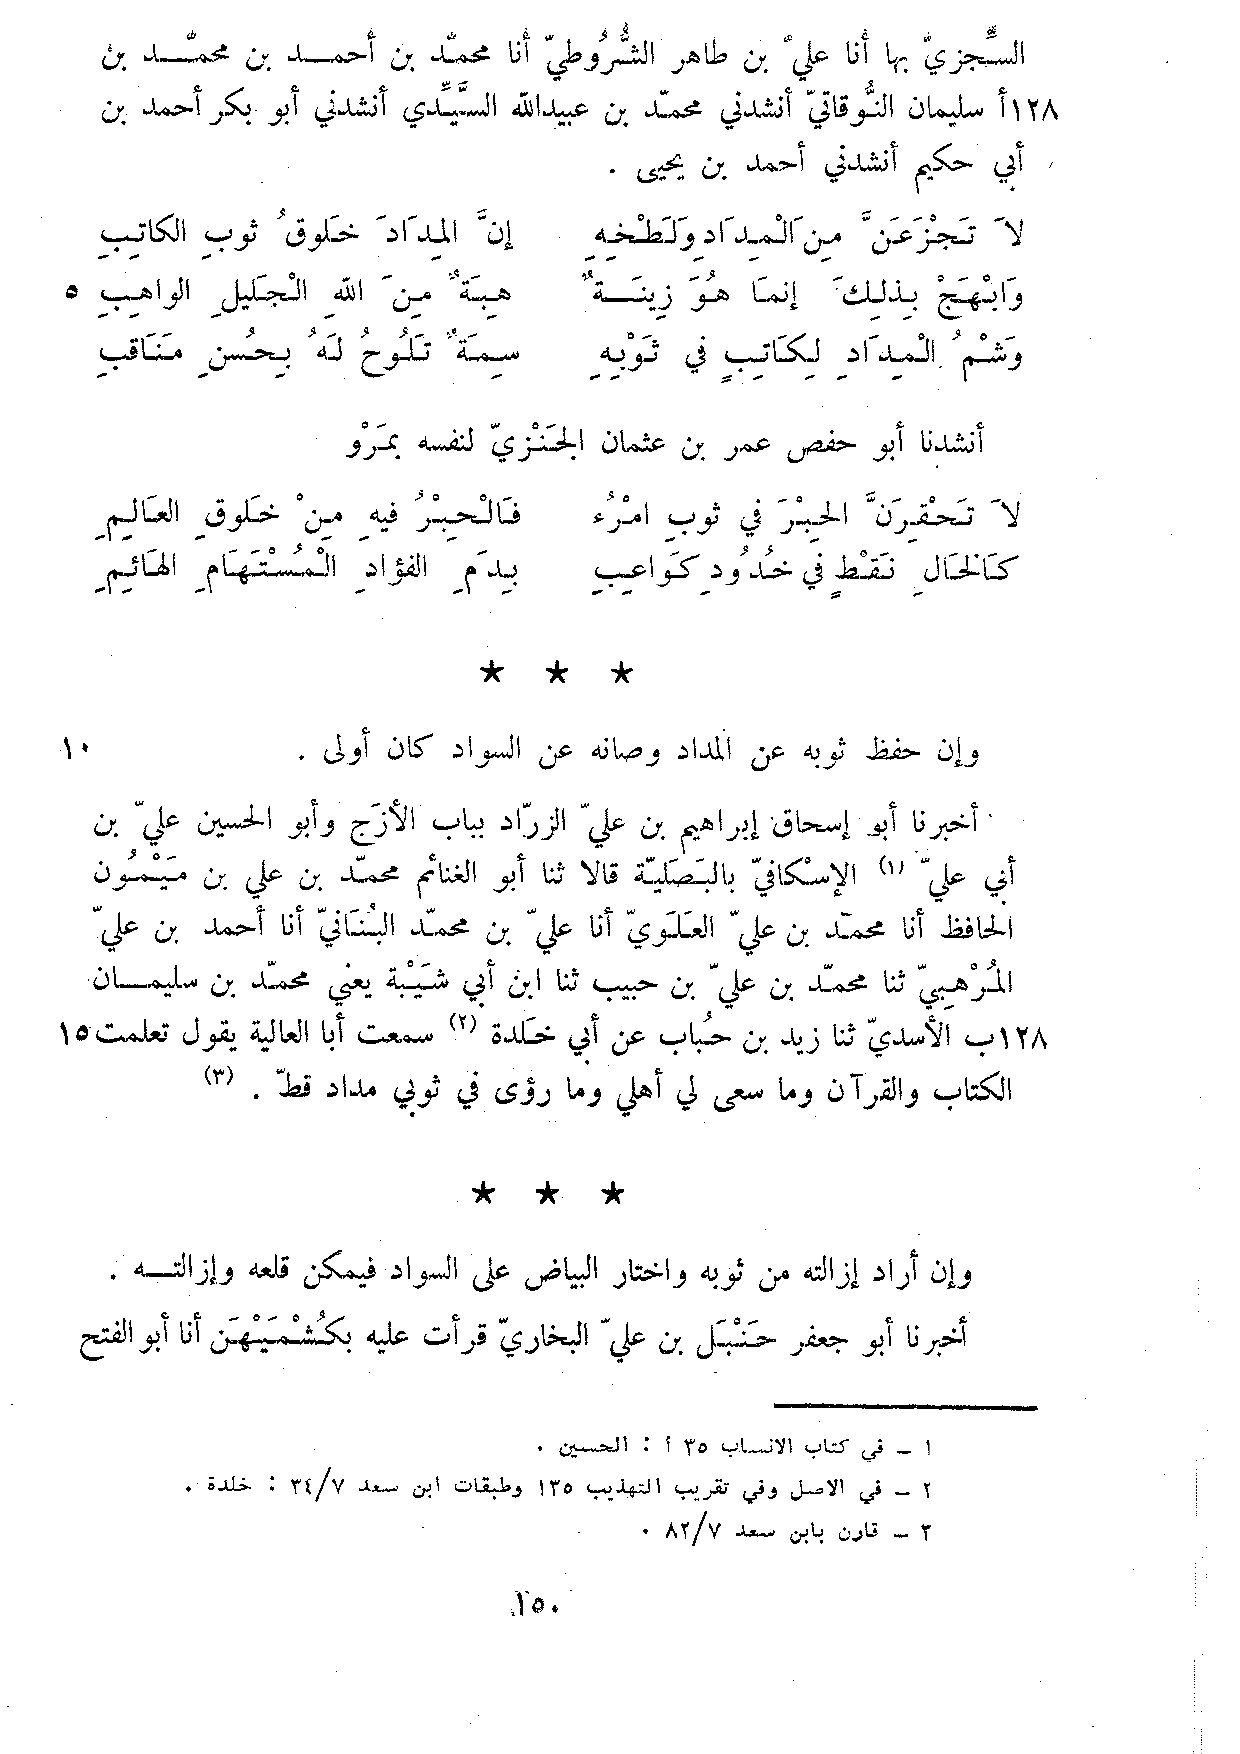 السِّجزيّ بها أنا عليّ بن طاهر الشُّرُوطيّ أنا محمّد بن أحمـد بن محمّـد بن
١٢٨أ سليمان النُّوقانيّ أنشدني محمّد بن عبيدالله السَّيِّدي أنشدني أبو بكر أحمد بن
أبي حكيم أنشدني أحمد بن يحيى .
لاَ تَجْزَعَنَّ مِنَ الْمِدَادِ وَلَطْخِهِ إنَّ المِدَادَ خَلُوقُ ثوبِ الكاتِبِ
وَابْهَجْ بِذلِكَ إنمَا هُوَ زِينَـةٌ هِبَةٌ مِنَ اللهِ الْجَلِيلِ الواهِبِ ٥
وَشْمُ الْمِدَادِ لِكَاتِبٍ فِي ثَوْبِهِ سِمَةٌ تَلُوحُ لَهُ بِحُسنِ مَنَاقِبِ
أنشدنا أبو حفص عمر بن عثمان الجَنْزيّ لنفسه بمَرْو
لاَ تَحْقِرَنَّ الحِبْرَ في ثوبِ امْرُء فَالْحِبْرُ فيهِ مِنْ خَلوقِ العَالِمِ
كَالخَالِ نَقْطٍ في خُدُودِ كَواعِبِ بِدَمِ الفؤادِ الْمُسْتَهَامِ الهَائِمِ
★ ★ ★
وإن حفظ ثوبه عن المداد وصانه عن السواد كان أولى . ١٠
أخبرنا أبو إسحاق إبراهيم بن عليّ الزرّاد بباب الأزَج وأبو الحسين عليّ بن
أبي عليّ (١) الإسْكافيّ بالبَصَليّة قالا ثنا أبو الغنائم محمّد بن علي بن مَيْمُون
الحافظ أنا محمّد بن عليّ العَلَويّ أنا عليّ بن محمّد البُنَانيّ أنا أحمد بن عليّ
المُرْهِبيّ ثنا محمّد بن عليّ بن حبيب ثنا ابن أبي شَيْبة يعني محمّد بن سليمـان
١٢٨ب الأسديّ ثنا زيد بن حُباب عن أبي خَلدة (٢) سمعت أبا العالية يقول تعلمت ١٥
الكتاب والقرآن وما سعى لي أهلي وما رؤى في ثوبي مداد قطّ . (٣)
★ ★ ★
وإن أراد إزالته من ثوبه واختار البياض على السواد فيمكن قلعه وإزالتـه .
أخبرنا أبو جعفر حَنْبَل بن عليّ البخاريّ قرأت عليه بكُشْمَيْهَن أنا أبو الفتح
١ – في كتاب الانساب ٣٥ أ : الحسين .
٢ – في الاصل وفي تقريب التهذيب ١٣٥ وطبقات ابن سعد ٣٤/٧ : خلدة .
٣ – قارن بابن سعد ٨٢/٧ .
١٥٠